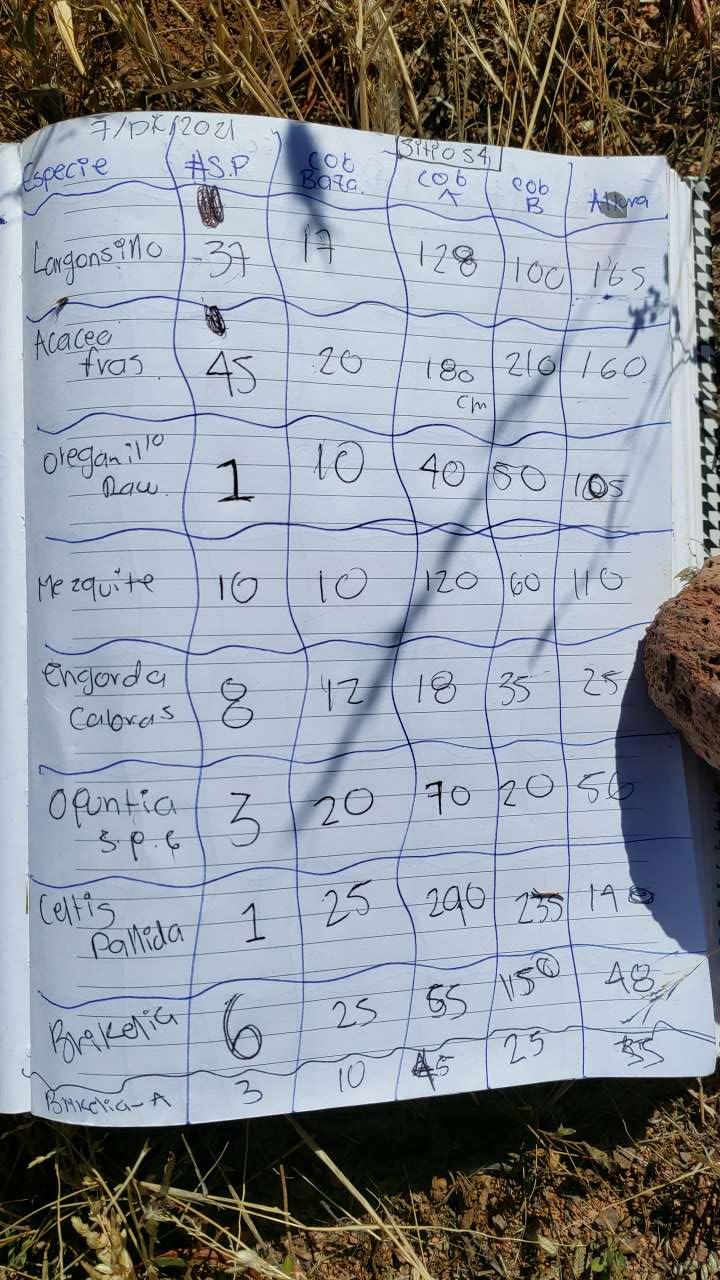 7/Dic/2021
Sitio S4
Especie #S.P Cob Baza. Cob A Cob B Altura
Largonsillo 37 17 128 100 165
Acacee fras 45 20 180 cm 210 160
Oreganillo Raw. 1 10 40 50 105
Mezquite 10 10 120 60 110
Engorda Cabras 8 12 18 35 25
Opuntia s.p.e 3 20 70 20 50
Celtis Pallida 1 25 290 235 190
Brikelia 6 25 55 150 48
Brikelia-A 3 10 45 25 35